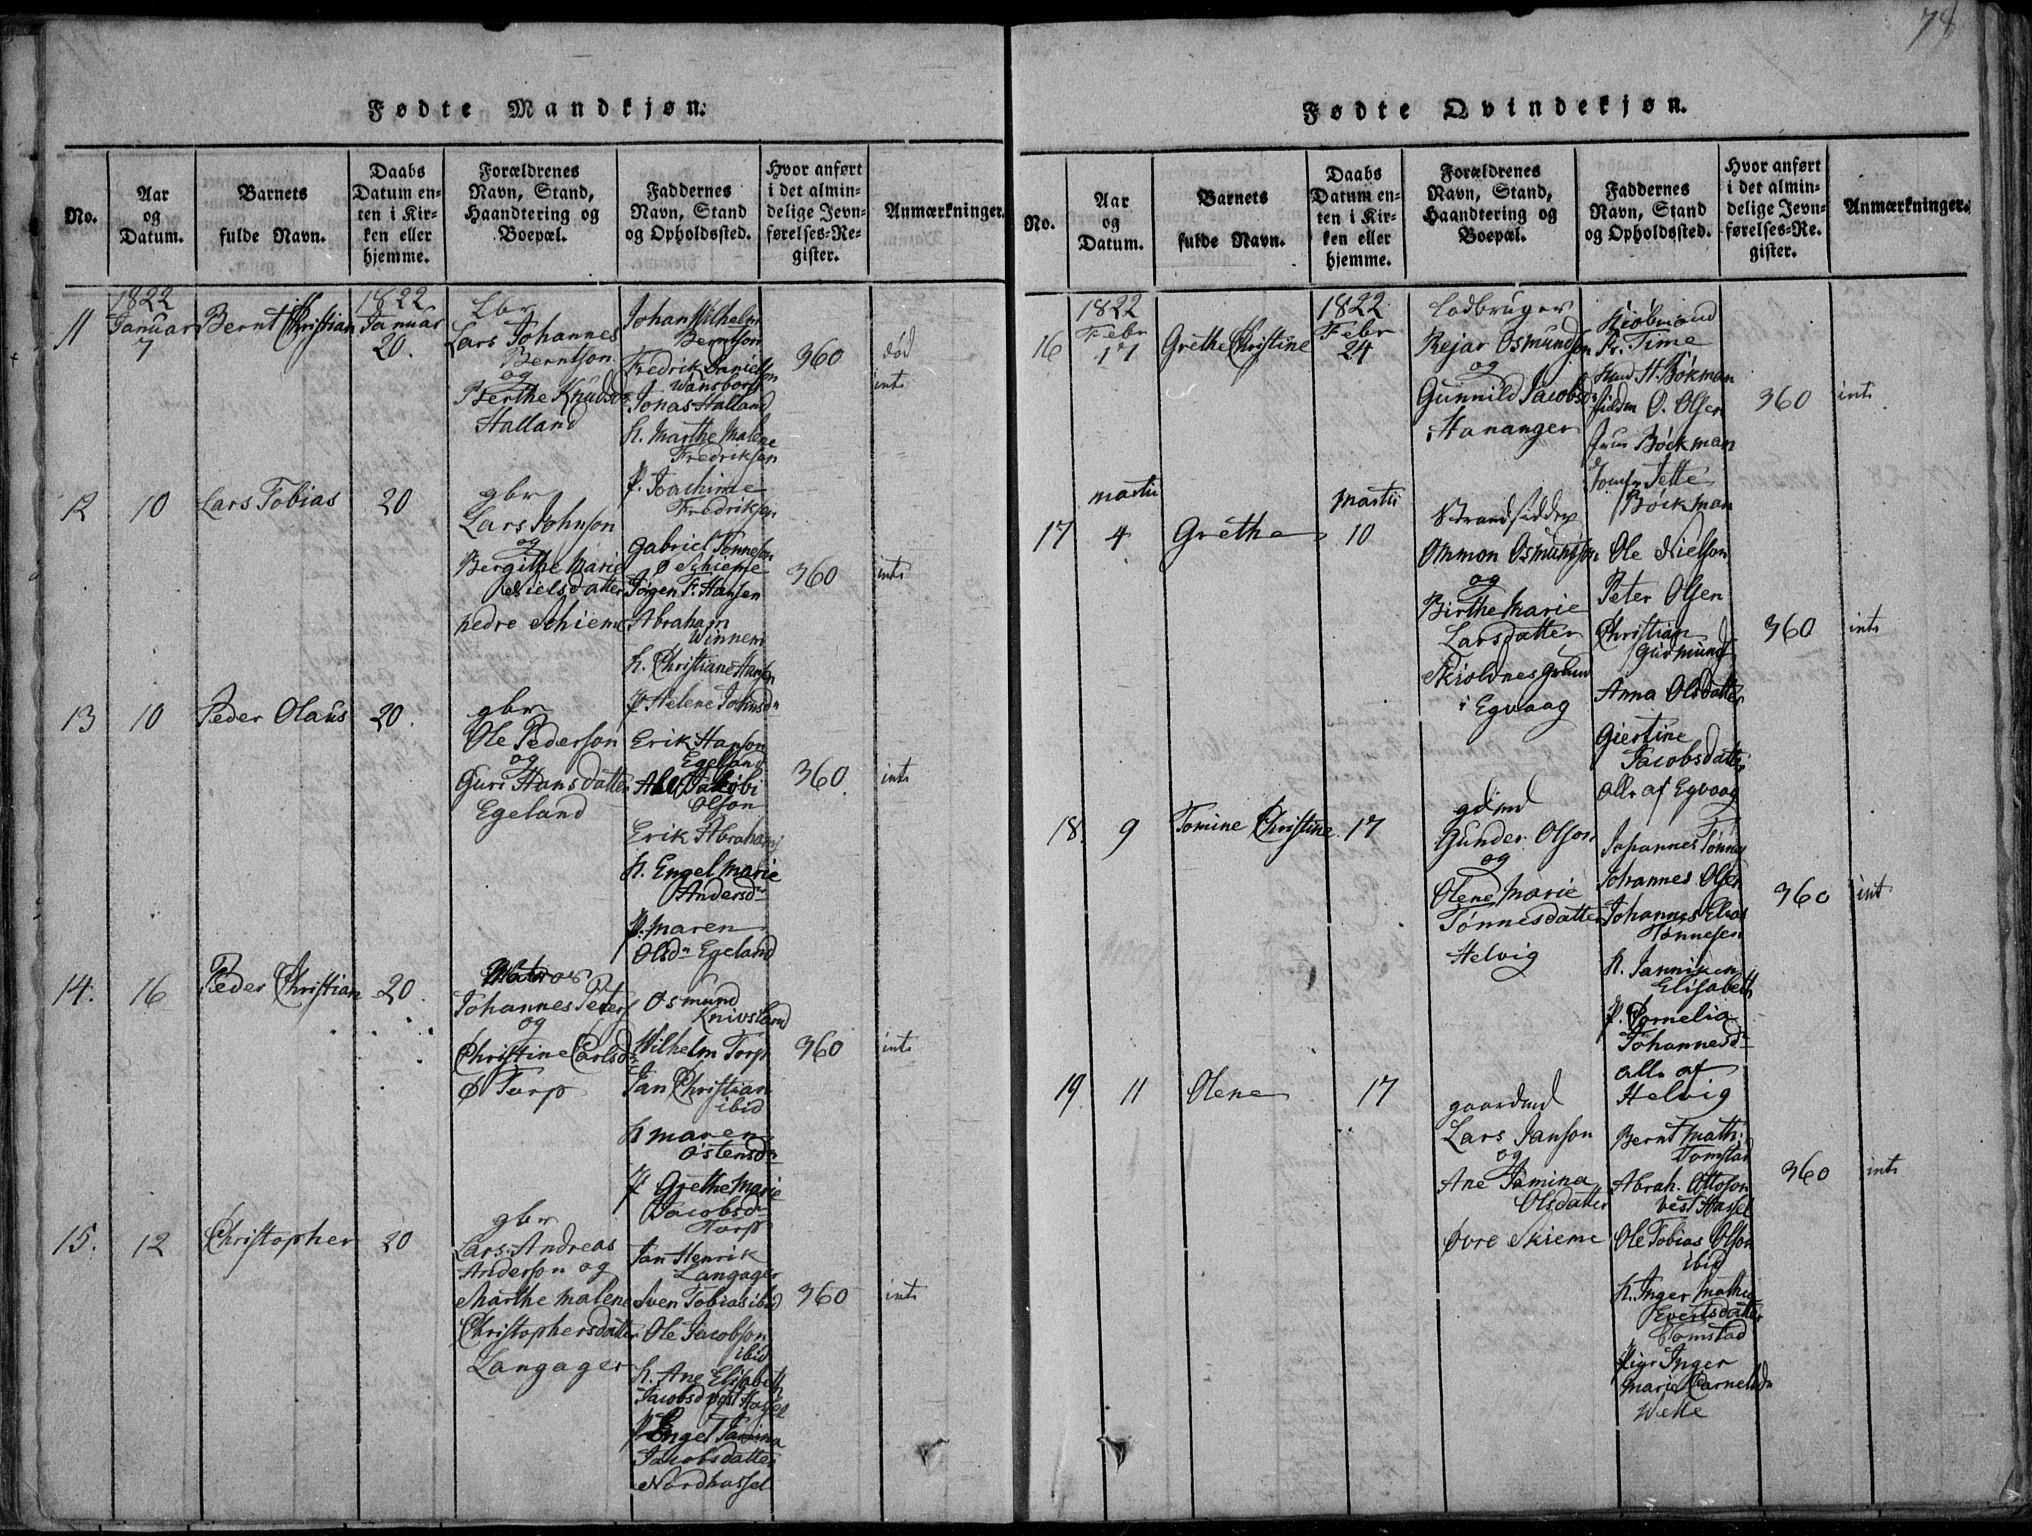 74
Fødte Mandkjøn.
No.
Aar
og
Datum.
Barnets
fulde Navn.
Daabs
Datum en-
ten i Kir-
ken eller
hjemme.
Forældrenes
Navn, Stand,
Haandtering og
Boepæl.
Faddernes
Navn, Stand
og Opholdssted.
Hvor anført
i det almin-
delige Jevn-
førelses-Re-
gister.
Anmærkninger.
11
1822
Januar
7
Bernt Christian
1822
Januar
20.
Lbr
Lars Johannes
Berntson
og
Berthe Knudsdr
Halland
Johan Wilhelm
Berntson
Fredrik Danielson
Wansborg
Jonas Halland
K. Marthe Malene
Fredriksen
P. Joachime
Fredriksen
360
død
int
12
10
Lars Tobias
20
gbr
Lars Johnson
og
Bergithe Marie
Nielsdatter
nedre Schieme
Gabriel Tønneson
Ø Schieme
Jørgen Fr. Hansen
Abraham
Winnem
K. Christiane Hansen
P Helene Johnsdr
360
int
13
10
Peder Olaus
20.
gbr
Ole Pederson
og
Guri Hansdatter
Egeland
Erik Hanson
Egeland
Jakobi
Olson
Erik Abrahams
K. Engel Marie
Andersdr
P. Maren
Olsdr Egeland
360
int
14.
16
Peder Christian
20.
Johannes Peters
og
Christine Carlsdr
Ø Torp
Osmund
Knivsland
Wilhelm Torp
Jan Christian
ibid
K Maren
Ostensdr
P Grethe Marie
Jacobsdr
Torp
360
int
15.
12
Christopher
20
gbr
Lars Andreas
Anderson og
Marthe Malene
Christophersdatter
Langager
Jan Henrik
Langager
Sven Tobias ibid
Ole Jacobson
ibid
K. Ane Elisabeth
Jacobsd Vest Hassel
P Engel Tamina
Jacobsdatter
Nordhassel
360
int
Fødte Qvindekjøn.
No.
Aar
og
Datum.
Barnets
fulde Navn.
Daabs
Datum en-
ten i Kir-
ken eller
hjemme.
Forældrenes
Navn, Stand,
Haandtering og
Boepæl.
Faddernes
Navn, Stand
og Opholdssted.
Hvor anført
i det almin-
delige Jevn-
førelses-Re.
gister.
Anmærkninger.
16
1822
Febr
17
Grethe Christine
1822
Febr
24
Lodbruger
Rejar Osmundson
og
Gunnild Jacobsdr
Hananger
Kiøbmand
Fr. Time
H. Bøkman
O. Olsen
Bøckman
Jomfr Jette
Bøckman
360
int
17
Martii
4
Grethe
Martii
10
Strandsidder
Ommon Osmundson
og
Birthe Marie
Larsdatter
Skiolnes Grund
i Egvaag
Ole Nielson
Peter Olsen
Christian
Gudmunds
Anna Olsdatter
Giertine
Jacobsdatter
alle af Egvaag
360
int
18.
9
Tomine Christine
17
gdmd
Gunder Olson
og
Olene Marie
Tønnesdatter
Helvig
Johannes Tønnes
Johannes Olsen
Johannes Elias
Tønnesen
K. Janniken
Elisabeth
P. Cornelia
Johannesdr
alle af
Helvig
360
int
19.
11
Olene
17
gaardmd
Lars Janson
og
Ane Tamina
Olsdatter
Øvre Skieme
Bernt Math:
Tomstad
Abrah. Ottoson
Vest Hassel
Ole Tobias Olson
ibid
K. Inger Mathea
Evertsdatter
Tomstad
Pige Inger
Marie Carnelidr
360
int